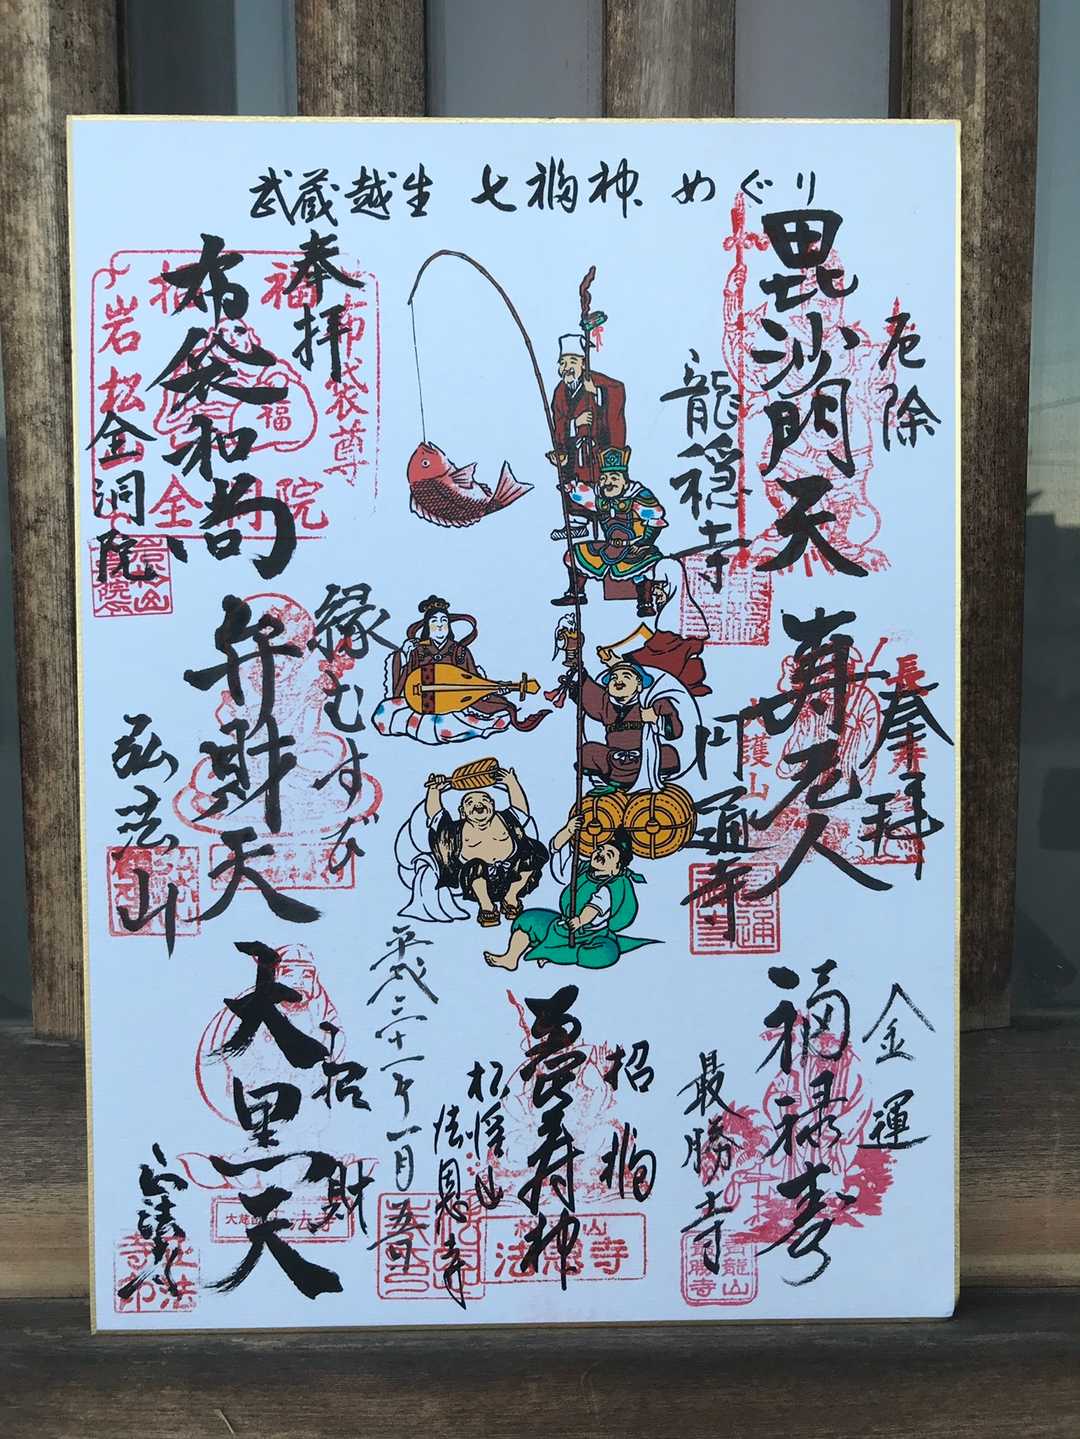 武蔵越生 七福神 めぐり
厄除
毘沙門天
龍穏寺
奉拝
寿老人
円通寺
長寿
護山
金運
福禄寿
最勝寺
招福
恵比寿神
松渓山
法恩寺
法恩寺
平成三十一年一月五日
奉拝
布袋和尚
岩松
全洞院
布袋尊
福
縁むすび
弁財天
弘法山
招財
大黒天
正法寺
正法寺印